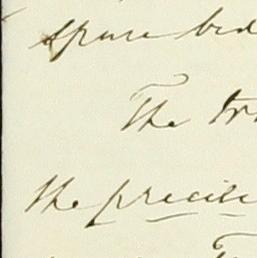 spare bed
The tr
the precise